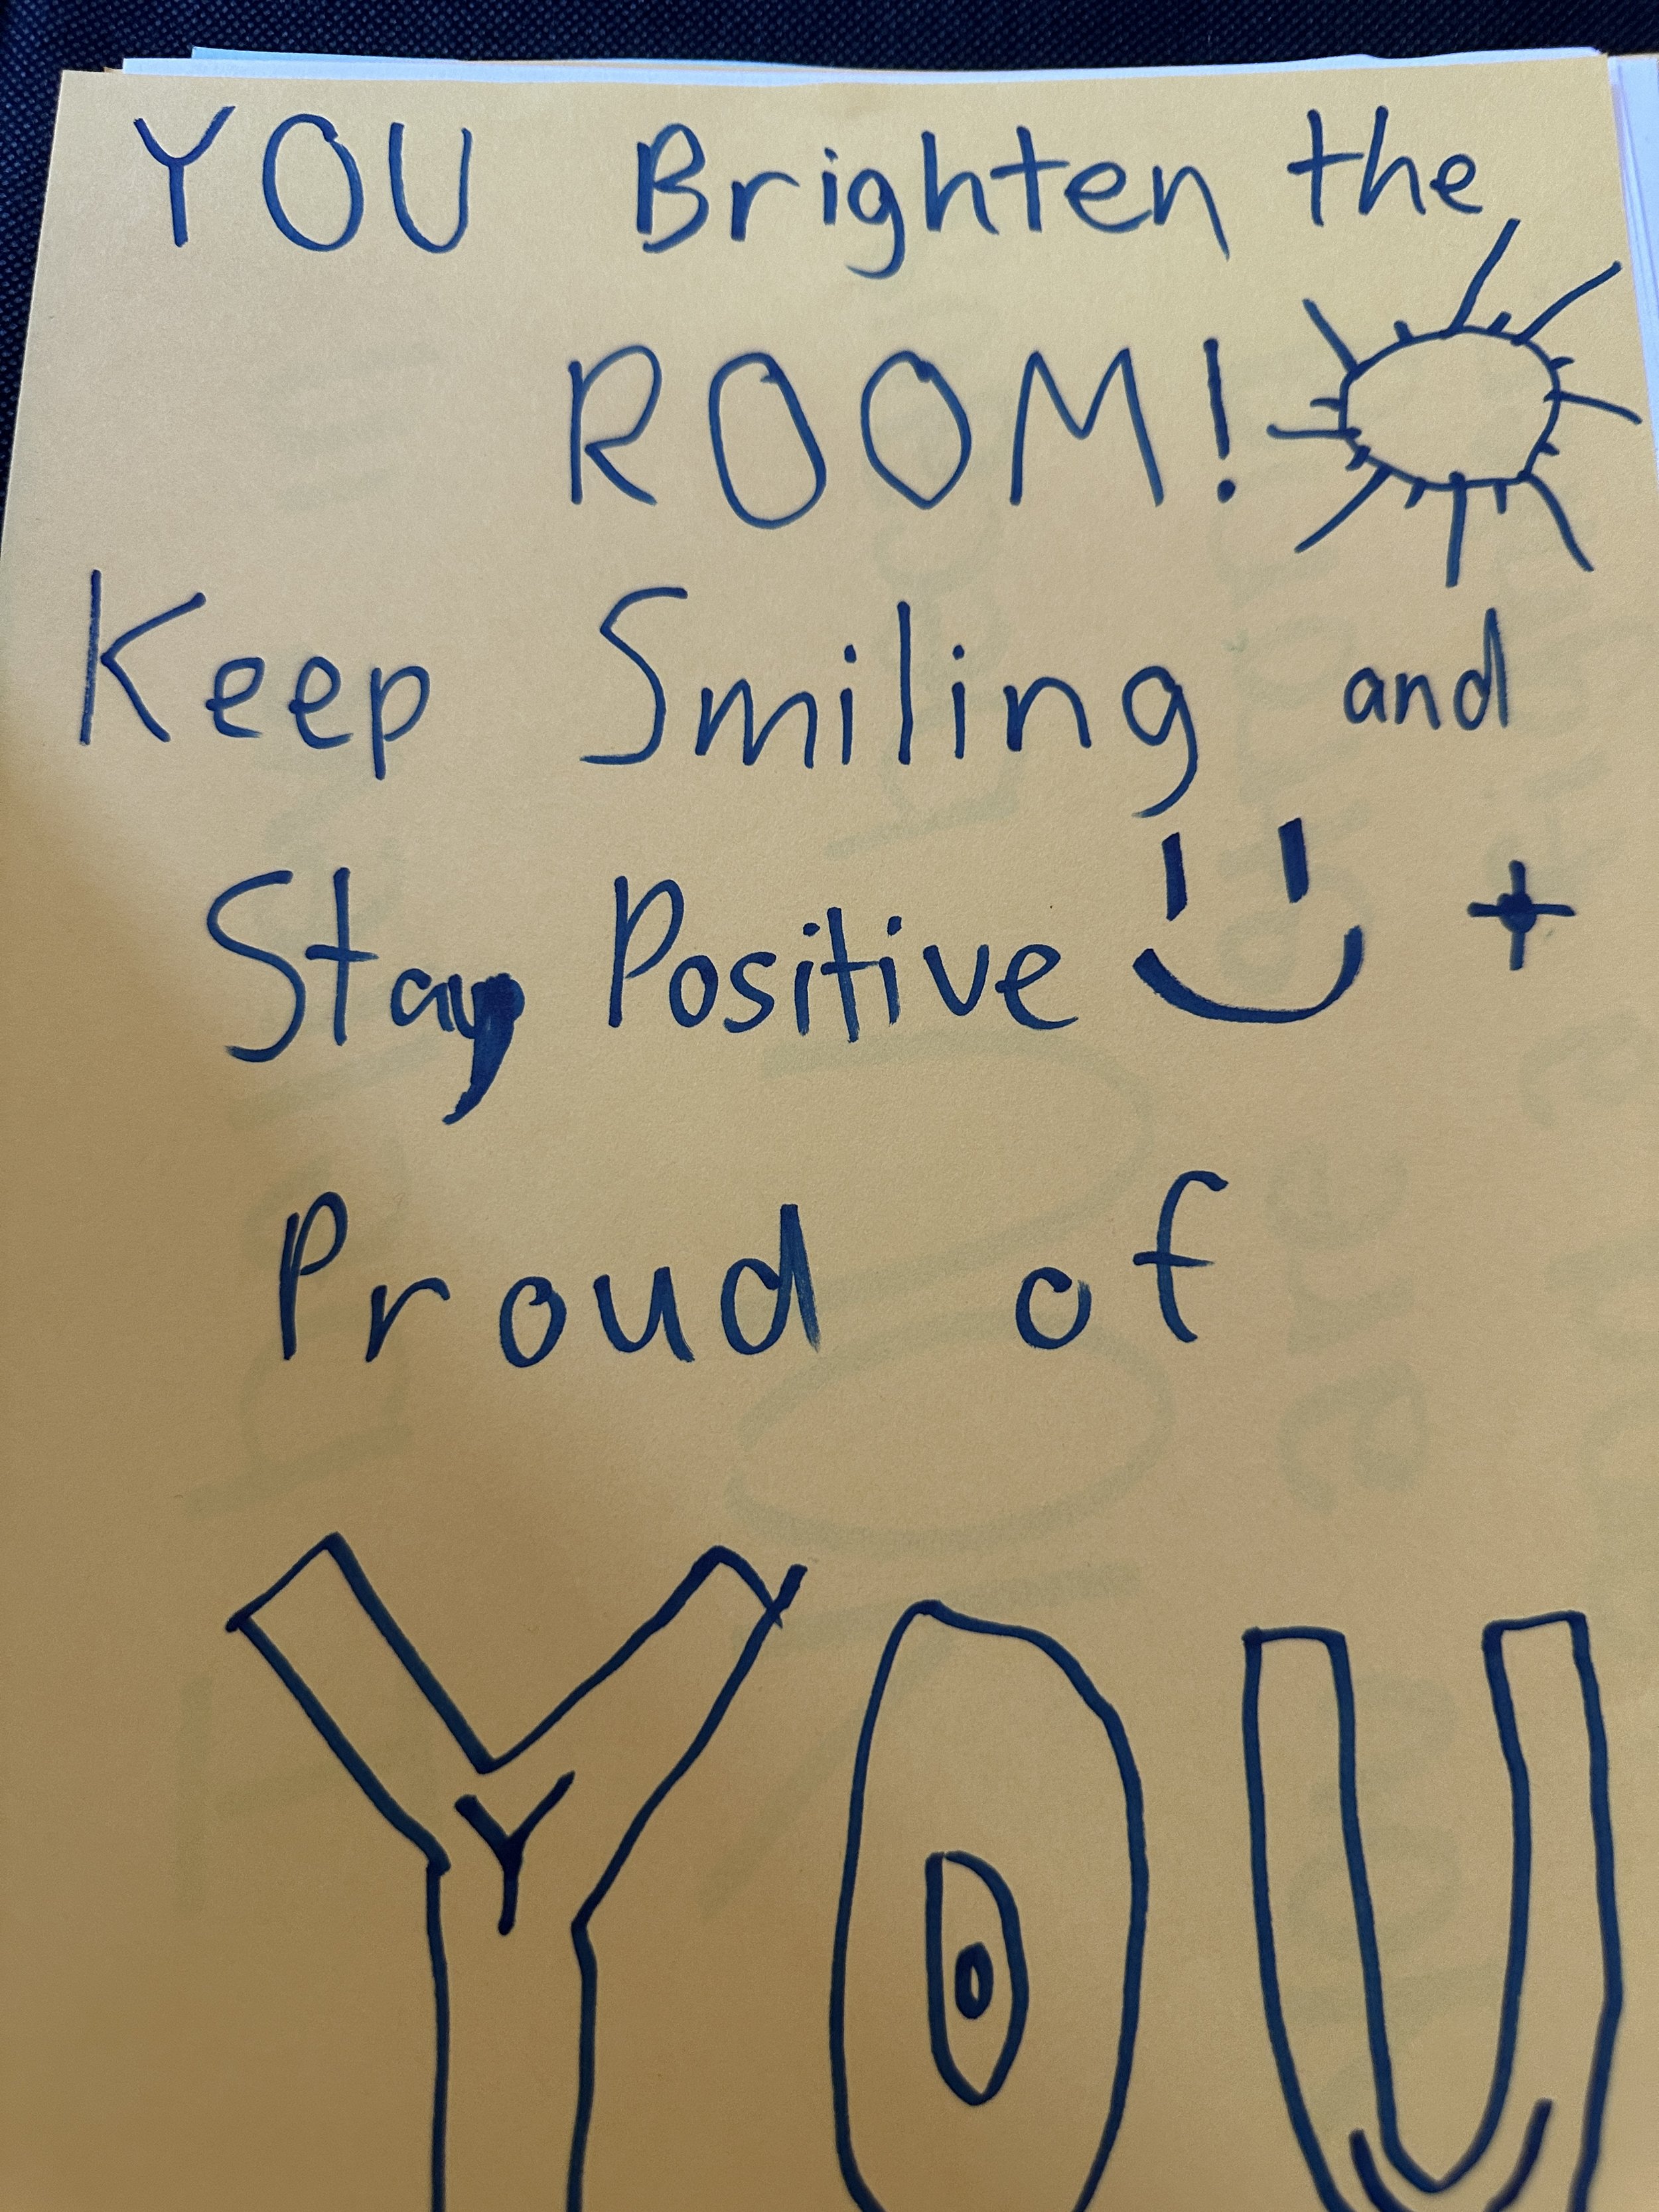 YOU Brighten the
ROOM!
Keep Smiling and
Stay Positive +
Proud of
YOU